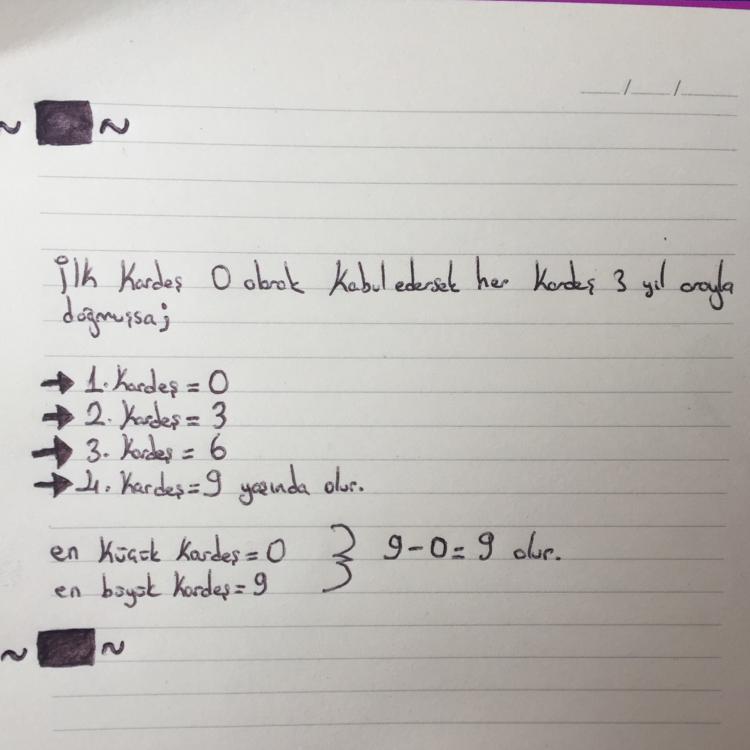 __/__/__
~ ~
İlk Kardeş 0 olarak Kabul edersek her Kardeş 3 yıl arayla
doğmuşsa;
→ 1. Kardeş = 0
→ 2. Kardeş = 3
→ 3. Kardeş = 6
→ 4. Kardeş = 9 yaşında olur.
en Küçük Kardeş = 0 } 9-0 = 9 olur.
en büyük Kardeş = 9
~ ~